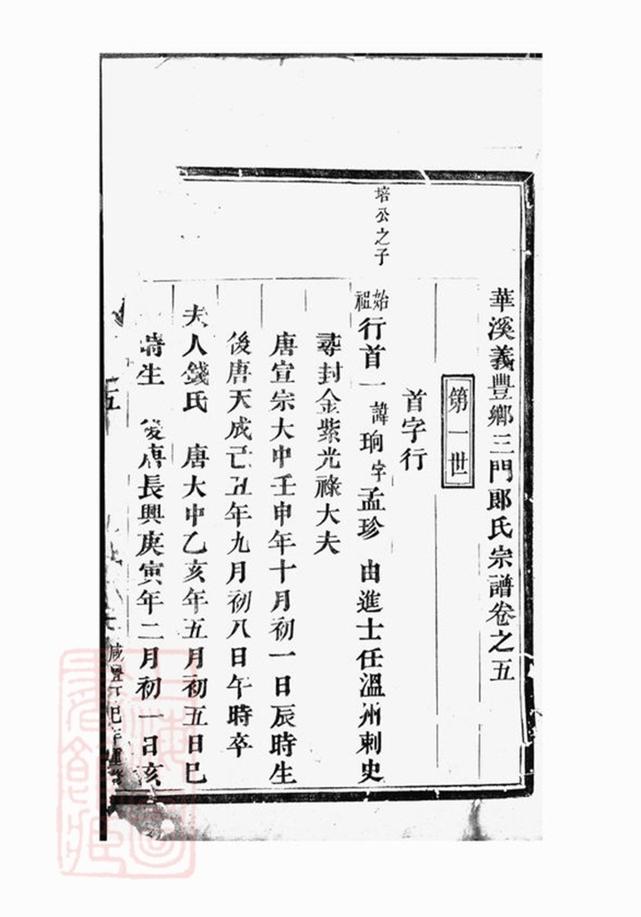 華溪義豐鄉三門郎氏宗譜卷之五
第一世
首字行
培公之子
始祖行首一諱珦字孟珍 由進士任溫州刺史
尋封金紫光祿大夫
唐宣宗大中壬申年十月初一日辰時生
後唐天成己丑年九月初八日午時卒
夫人錢氏 唐大中乙亥年五月初五日巳
時生 後唐長興庚寅年二月初一日亥
五
咸豐丁巳年重修